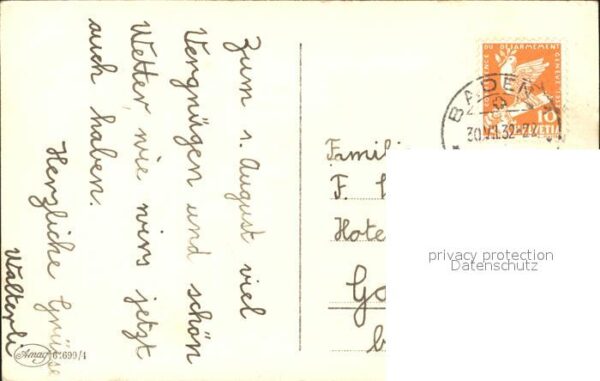 Zum 1. August viel
Vergnügen und schön
Wetter, wie wirs jetzt
auch haben.
Herzliche Grüsse
Walterli
Amag 6?699/1
CONFERENCE DU DESARMEMENT
GENEVE 1932
10
HELVETIA
BADEN
30.VII.32-22
Familie
F.
Hote
Ga
b
privacy protection
Datenschutz